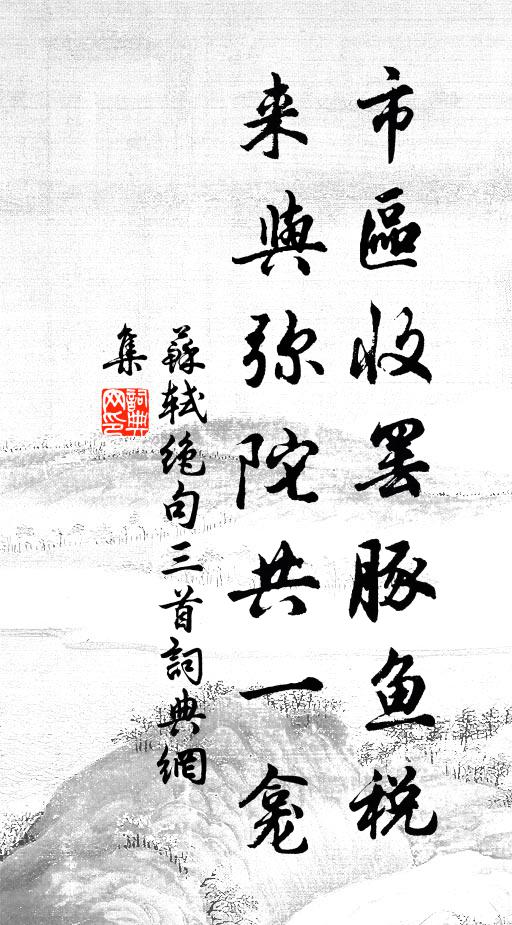 市區收罢豚魚税
来與弥陀共一龕
蘇軾绝句三首詞典網
集
詞典網印